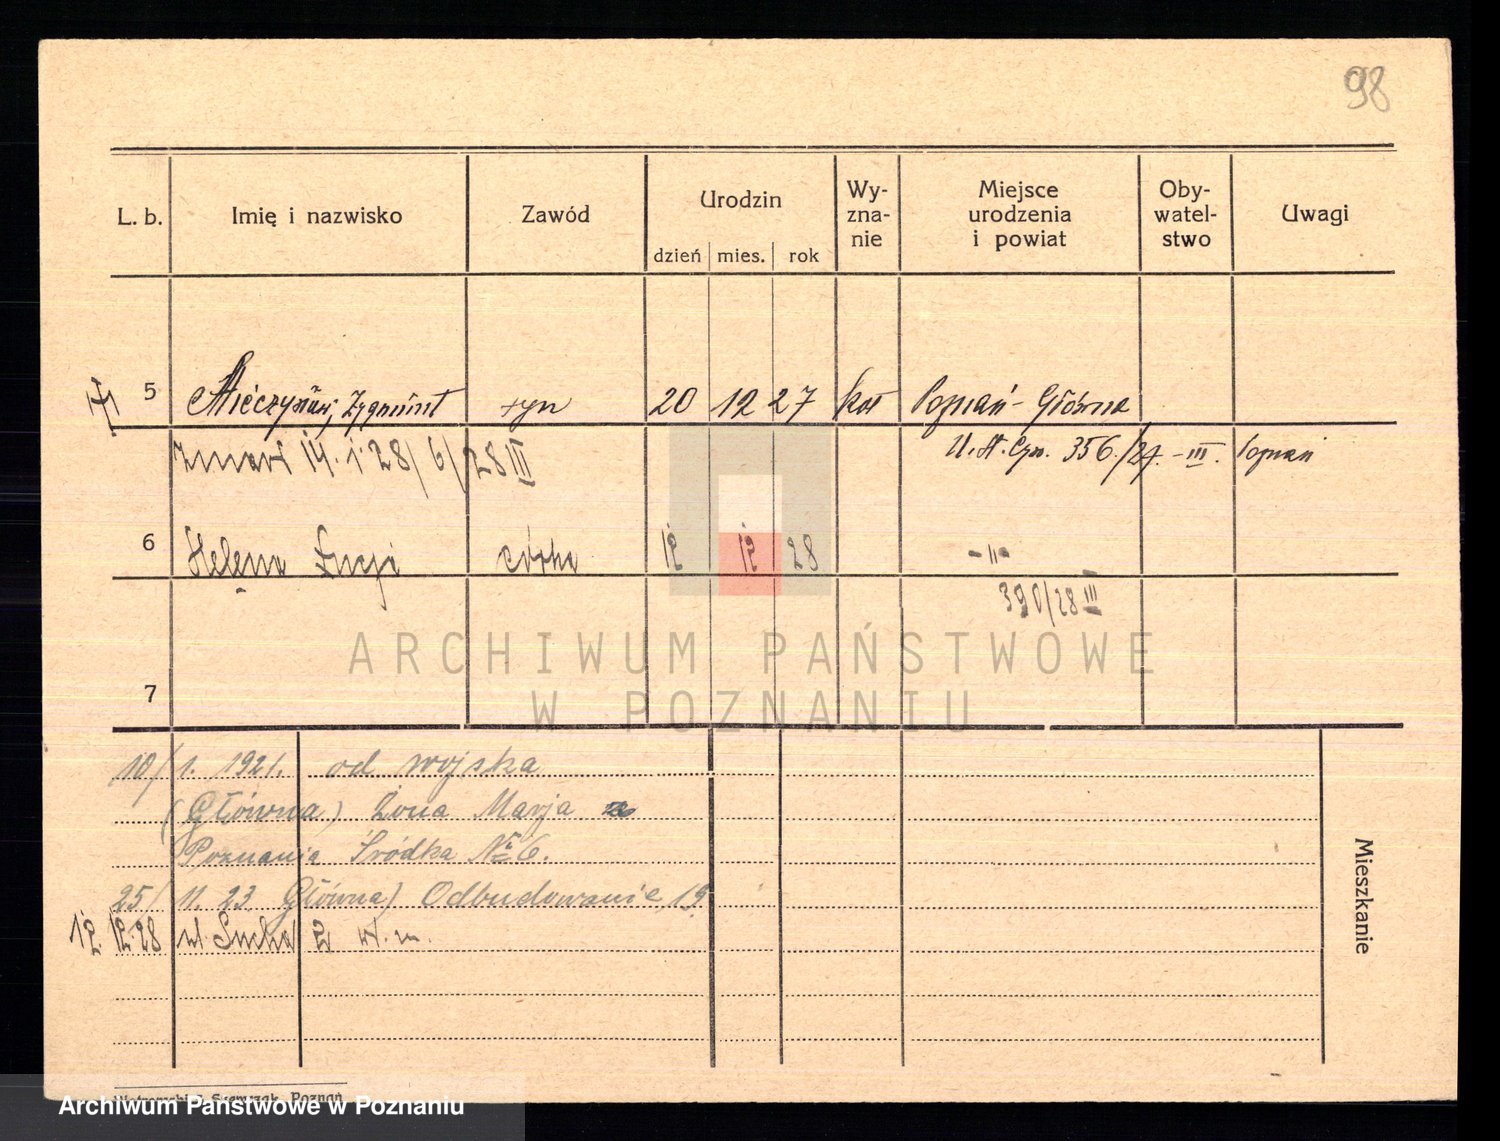 98
L. b. Imię i nazwisko Zawód Urodzin dzień mies. rok Wy-zna-nie Miejsce urodzenia i powiat Oby-watel-stwo Uwagi
5 Mieczysław, Zygmunt syn 20 12 27 kat Poznań-Główna
Zmarł 14. 1. 28/6/28 III U. St. Cyw. 356./27. - III. Poznań
6 Helena Łucja córka 12 12 28 -II-
390/28 III
ARCHIWUM PAŃSTWOWE
W POZNANIU
7
10/1. 1921. od wojska
(Główna) żona Marja z
Poznania Śródka № 6.
25/11. 23. Główna) Odbudowanie 19.
12. 12. 28 ul. Sucha 2 w. m.
Mieszkanie
Poznań
Archiwum Państwowe w Poznaniu